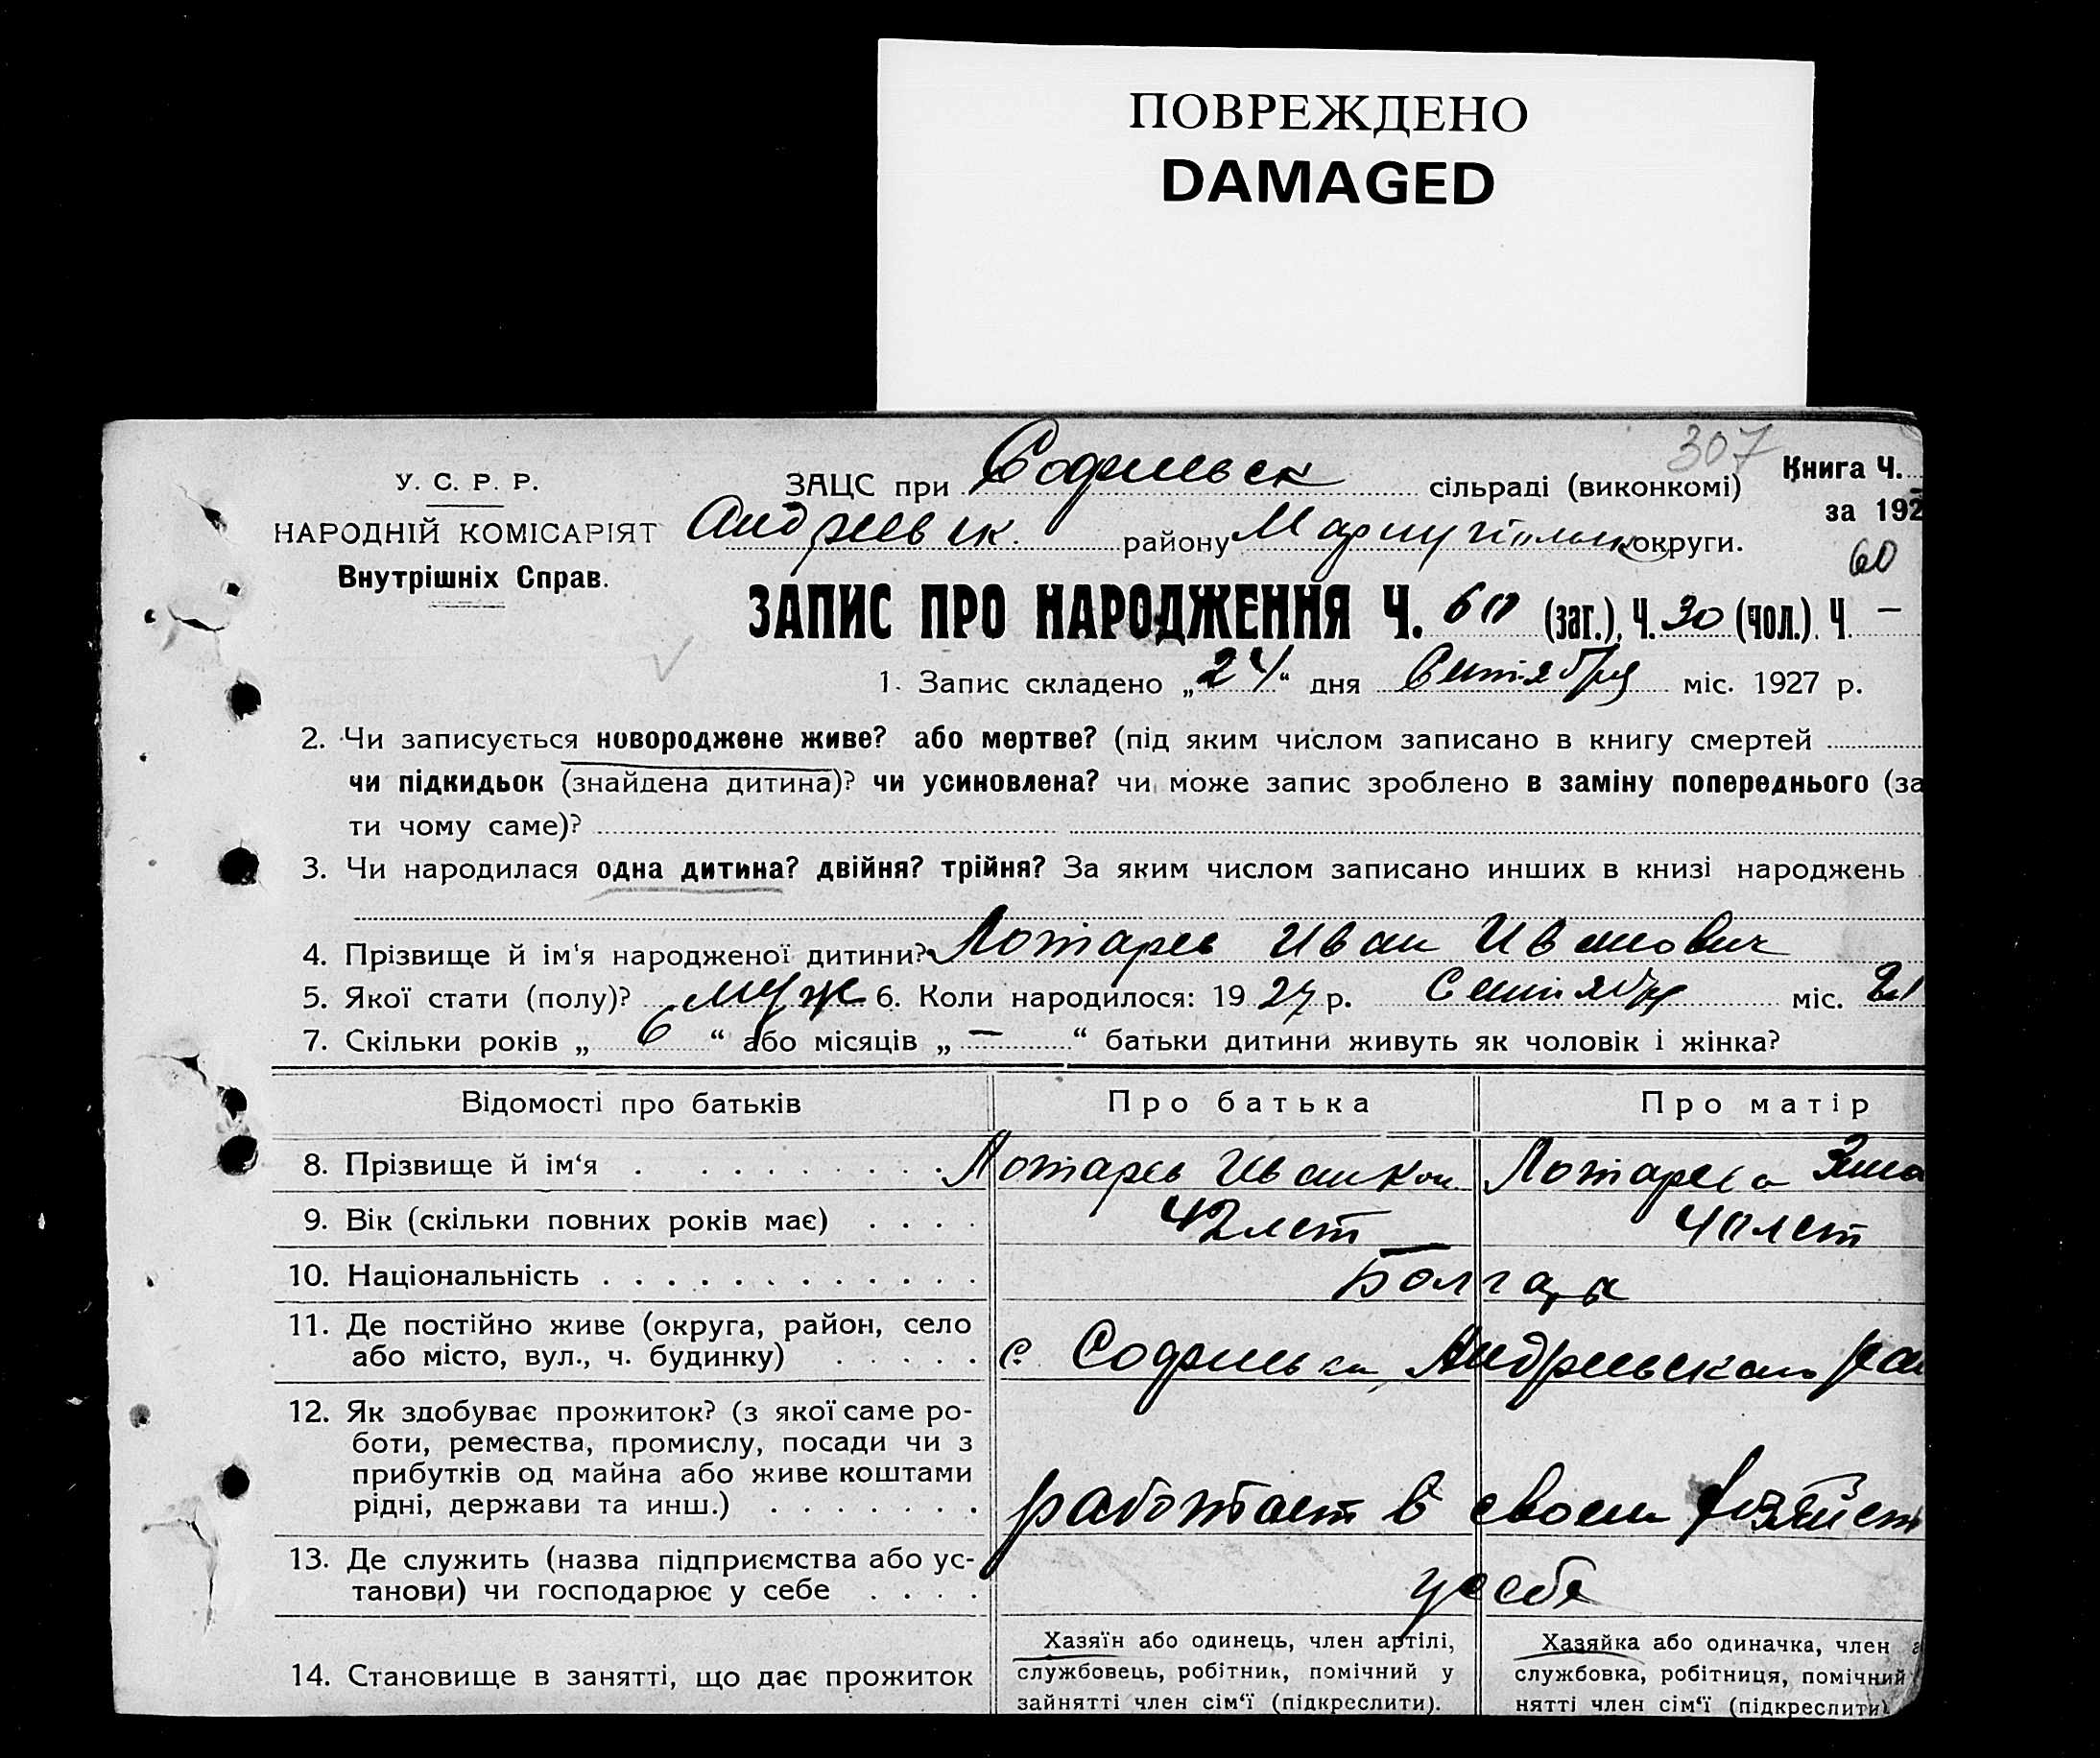 ПОВРЕЖДЕНО
DAMAGED
307
Книга Ч.
за 192
60
У. С. Р. Р.
НАРОДНІЙ КОМІСАРІЯТ
Внутрішніх Справ.
ЗАЦС при сільраді (виконкомі)
Андреевск. району Мариупільськ округи.
ЗАПИС ПРО НАРОДЖЕННЯ Ч. 60 (заг.), Ч. 30 (чол.). Ч. —
1. Запис складено „24“ дня Сентября міс. 1927 р.
2. Чи записується новороджене живе? або мертве? (під яким числом записано в книгу смертей
чи підкидьок (знайдена дитина)? чи усиновлена? чи може запис зроблено в заміну попереднього (за
ти чому саме)?
3. Чи народилася одна дитина? двійня? трійня? За яким числом записано инших в книзі народжень
4. Прізвище й ім‘я народженої дитини? Лотарев Иван Иванович
5. Якої стати (полу)? муж 6. Коли народилося: 1927 р. Сентября міс. 21
7. Скільки років „ 6 “ або місяців „ — “ батьки дитини живуть як чоловік і жінка?
Відомості про батьків Про батька Про матір
8. Прізвище й ім‘я Лотарев Лотарева
9. Вік (скільки повних років має) 42 лет 40 лет
10. Національність Болгары
11. Де постійно живе (округа, район, село
або місто, вул., ч. будинку) с. Андреевского
12. Як здобуває прожиток? (з якої саме ро-
боти, ремества, промислу, посади чи з
прибутків од майна або живе коштами
рідні, держави та инш.) работает в своем хозяйст
13. Де служить (назва підприємства або ус-
танови) чи господарює у себе у себя
14. Становище в занятті, що дає прожиток
Хазяїн або одинець, член артілі,
службовець, робітник, помічний у
зайнятті член сім‘ї (підкреслити).
Хазяйка або одиначка, член а
службовка, робітниця, помічний
нятті член сім‘ї (підкреслити)